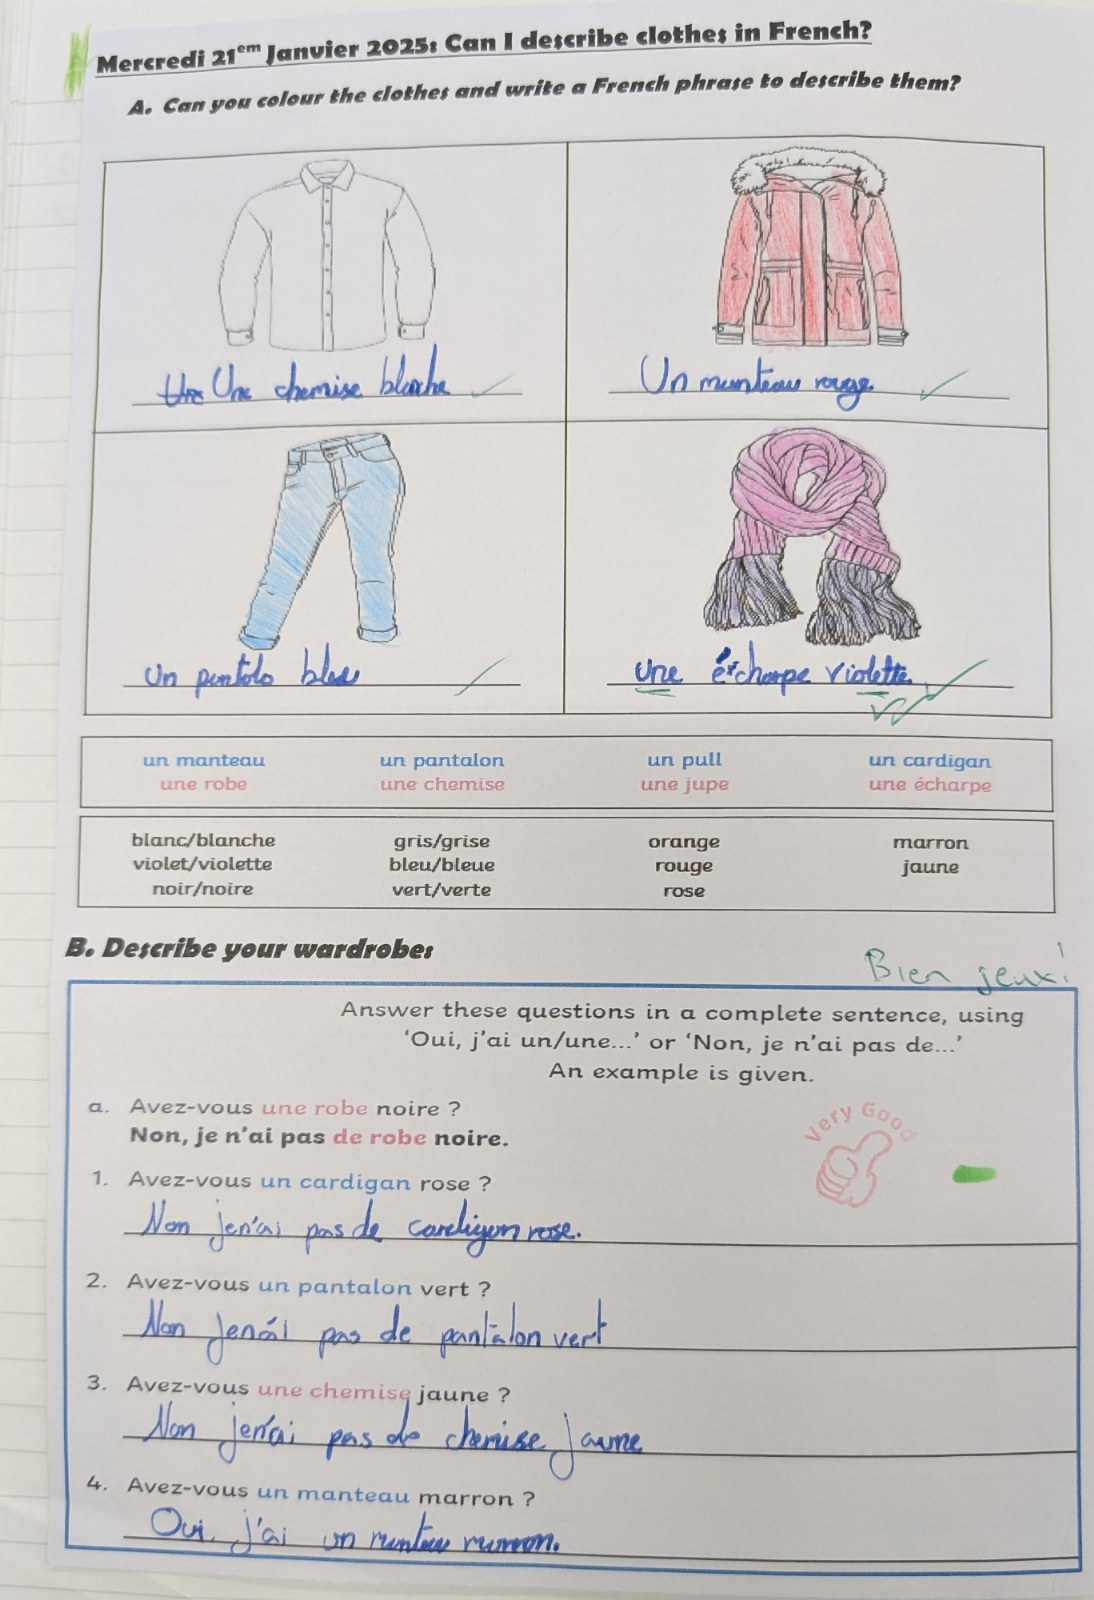 Mercredi 21em Janvier 2025: Can I describe clothes in French?
A. Can you colour the clothes and write a French phrase to describe them?
Une Une chemise blanche
Un manteau rouge
Un pantalo bleu
une écharpe violette
un manteau un pantalon un pull un cardigan
une robe une chemise une jupe une écharpe
blanc/blanche gris/grise orange marron
violet/violette bleu/bleue rouge jaune
noir/noire vert/verte rose
B. Describe your wardrobe:
Bien jeux!
Answer these questions in a complete sentence, using
‘Oui, j’ai un/une...’ or ‘Non, je n’ai pas de...’
An example is given.
a. Avez-vous une robe noire ?
Non, je n’ai pas de robe noire.
Very Good
1. Avez-vous un cardigan rose ?
Non jen'ai pas de cardigan rose.
2. Avez-vous un pantalon vert ?
Non jen'ai pas de pantalon vert
3. Avez-vous une chemise jaune ?
Non jen'ai pas de chemise jaune
4. Avez-vous un manteau marron ?
Oui, j'ai un manteau marron.